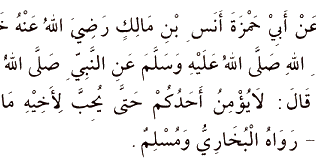 عَنْ أَبِيْ حَمْزَةَ أَنَسِ بْنِ مَالِكٍ رَضِيَ اللهُ عَنْهُ
اللهِ صَلَّى اللهُ عَلَيْهِ وَسَلَّمَ عَنِ النَّبِيِّ صَلَّى اللهُ
قَالَ: لَايُؤْمِنُ أَحَدُكُمْ حَتَّى يُحِبَّ لِأَخِيْهِ مَا
– رَوَاهُ الْبُخَارِيُّ وَمُسْلِمٌ.